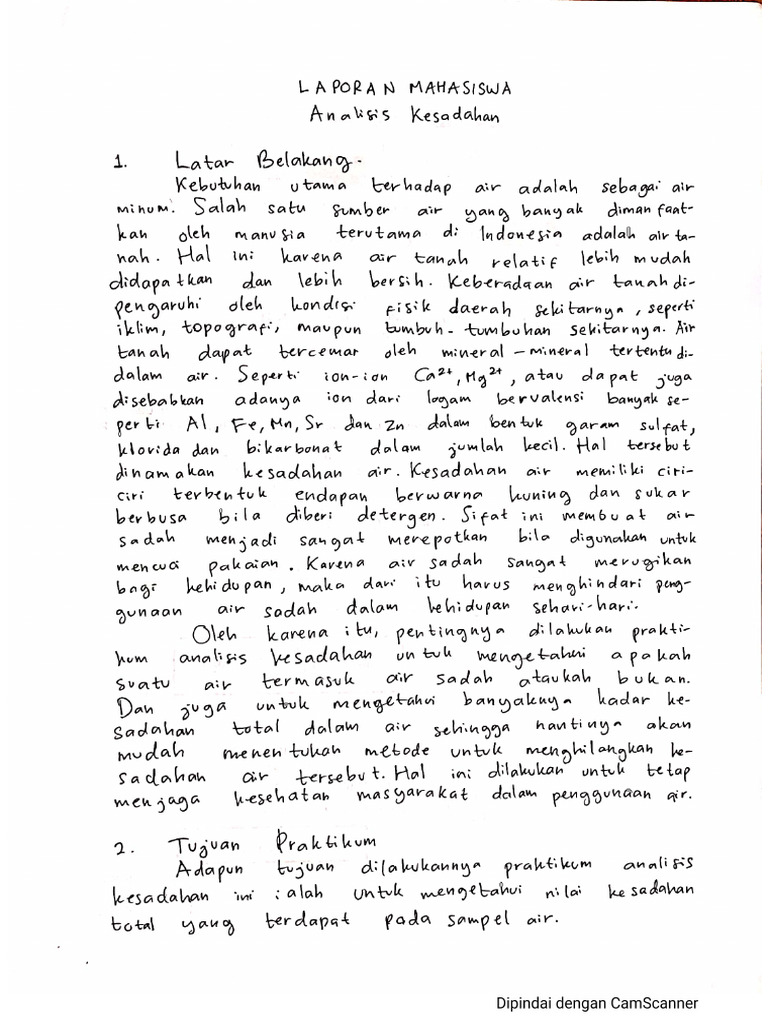 LAPORAN MAHASISWA
Analisis Kesadahan
1. Latar Belakang.
Kebutuhan utama terhadap air adalah sebagai air
minum. Salah satu sumber air yang banyak dimanfaat-
kan oleh manusia terutama di Indonesia adalah air ta-
nah. Hal ini karena air tanah relatif lebih mudah
didapatkan dan lebih bersih. Keberadaan air tanah di-
pengaruhi oleh kondisi fisik daerah sekitarnya, seperti
iklim, topografi, maupun tumbuh-tumbuhan sekitarnya. Air
tanah dapat tercemar oleh mineral-mineral tertentu di-
dalam air. Seperti ion-ion Ca²⁺, Mg²⁺, atau dapat juga
disebabkan adanya ion dari logam bervalensi banyak se-
perti Al, Fe, Mn, Sr dan Zn dalam bentuk garam sulfat,
klorida dan bikarbonat dalam jumlah kecil. Hal tersebut
dinamakan kesadahan air. Kesadahan air memiliki ciri-
ciri terbentuk endapan berwarna kuning dan sukar
berbusa bila diberi detergen. Sifat ini membuat air
sadah menjadi sangat merepotkan bila digunakan untuk
mencuci pakaian. Karena air sadah sangat merugikan
bagi kehidupan, maka dari itu harus menghindari peng-
gunaan air sadah dalam kehidupan sehari-hari.
Oleh karena itu, pentingnya dilakukan prakti-
kum analisis kesadahan untuk mengetahui apakah
suatu air termasuk air sadah ataukah bukan.
Dan juga untuk mengetahui banyaknya kadar ke-
sadahan total dalam air sehingga nantinya akan
mudah menentukan metode untuk menghilangkan ke-
sadahan air tersebut. Hal ini dilakukan untuk tetap
menjaga kesehatan masyarakat dalam penggunaan air.
2. Tujuan Praktikum
Adapun tujuan dilakukannya praktikum analisis
kesadahan ini ialah untuk mengetahui nilai kesadahan
total yang terdapat pada sampel air.
Dipindai dengan CamScanner